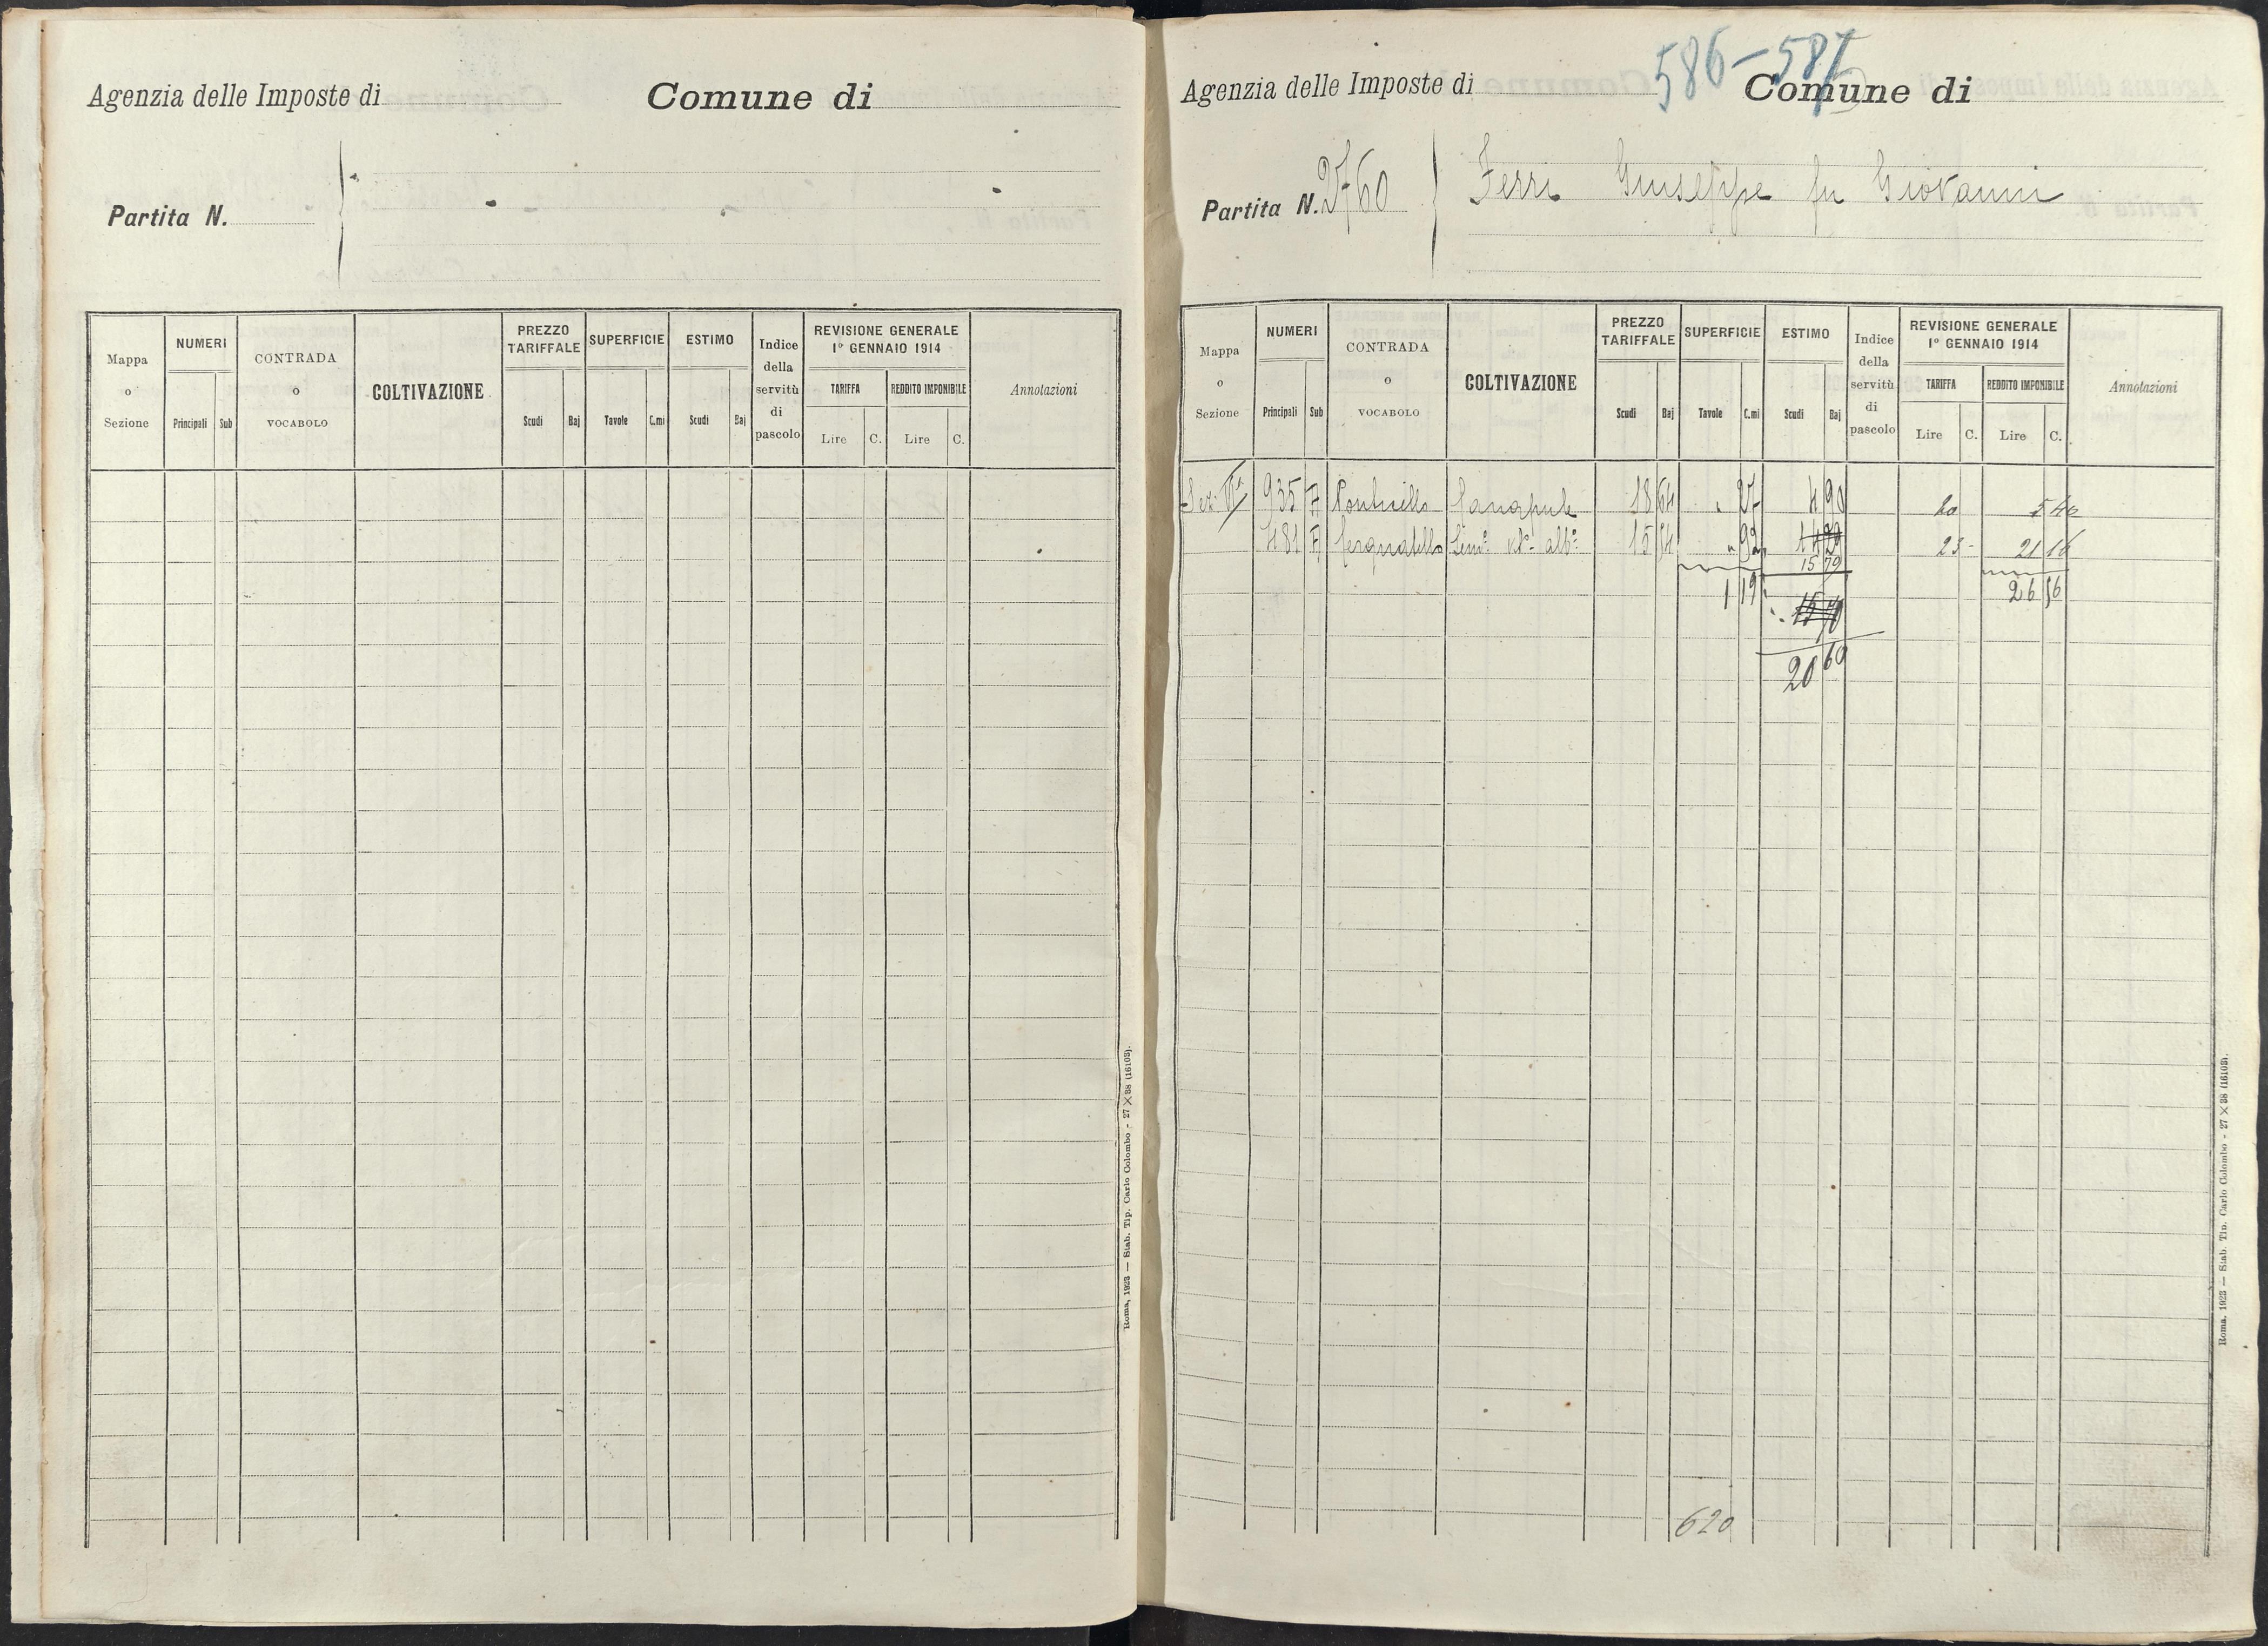 Agenzia delle Imposte di Comune di
Partita N.
Mappa o Sezione
NUMERI
Principali Sub
CONTRADA o VOCABOLO
COLTIVAZIONE
PREZZO TARIFFALE
Scudi Baj
SUPERFICIE
Tavole C.mi
ESTIMO
Scudi Baj
Indice della servitù di pascolo
REVISIONE GENERALE 1° GENNAIO 1914
TARIFFA
Lire C.
REDDITO IMPONIBILE
Lire C.
Annotazioni
Roma, 1923 — Stab. Tip. Carlo Colombo - 27 × 38 (16103).
586-587
Agenzia delle Imposte di Comune di
Partita N. 2760 Ferri Giuseppe fu Giovanni
Mappa o Sezione
NUMERI
Principali Sub
CONTRADA o VOCABOLO
COLTIVAZIONE
PREZZO TARIFFALE
Scudi Baj
SUPERFICIE
Tavole C.mi
ESTIMO
Scudi Baj
Indice della servitù di pascolo
REVISIONE GENERALE 1° GENNAIO 1914
TARIFFA
Lire C.
REDDITO IMPONIBILE
Lire C.
Annotazioni
Sez: VIa 935 Canapule 18 64 " 27 4 90 20 5 40
481 Sem: alb: " 92 23 - 21 16
15 79
1 19 26 56
20 69
620
Roma, 1923 — Stab. Tip. Carlo Colombo - 27 × 38 (16103).